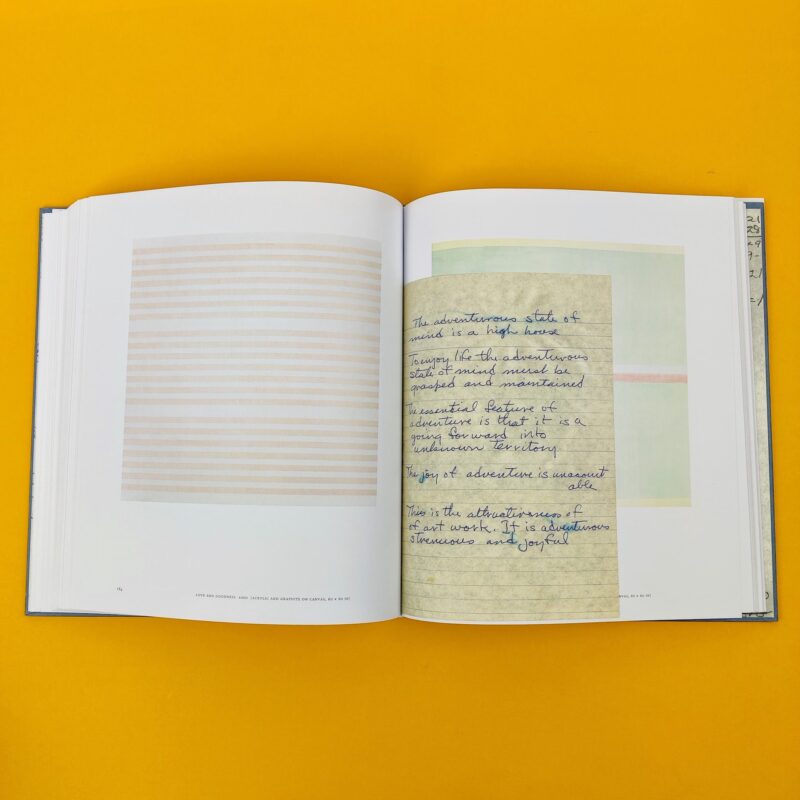 184
LOVE AND GOODNESS 2000 [ACRYLIC AND GRAPHITE ON CANVAS, 60 X 60 IN]
The adventurous state of
mind is a high house
To enjoy life the adventurous
state of mind must be
grasped and maintained
The essential feature of
adventure is that it is a
going forward into
unknown territory
The joy of adventure is unaccount
able
This is the attractiveness of
of art work. It is adventurous
strenuous and joyful
60 X 60 IN]
21